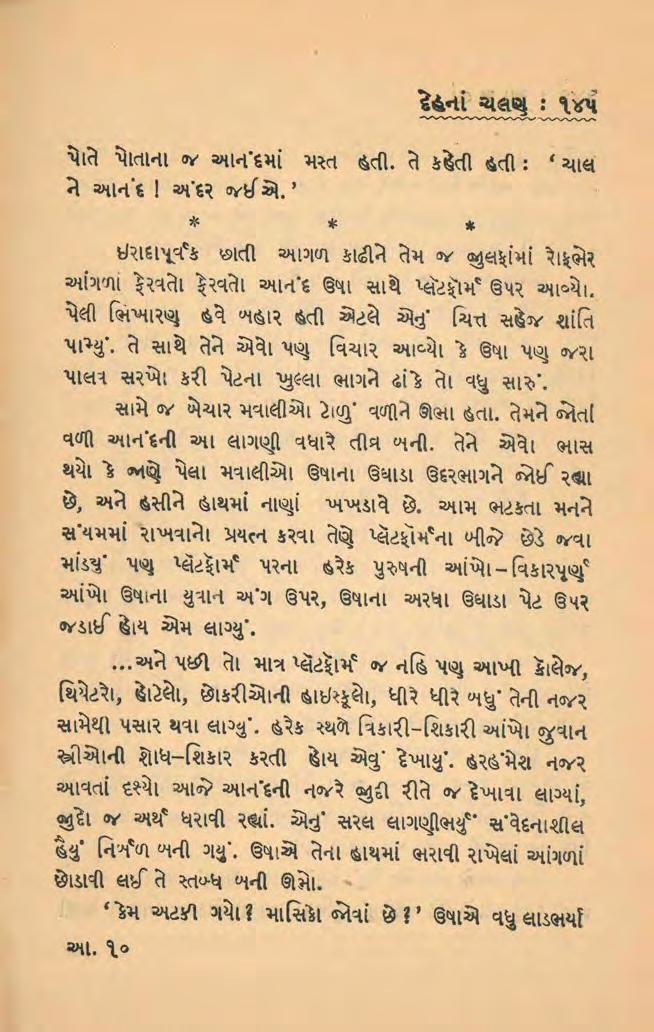 દેહનાં ચલણ : ૧૪૫
પોતે પોતાના જ આનંદમાં મસ્ત હતી. તે કહેતી હતી : ‘ચાલ
ને આનંદ ! અંદર જઈએ.’
* * *
ઇરાદાપૂર્વક છાતી આગળ કાઢીને તેમ જ જુલફાંમાં રોફભેર
આંગળાં ફેરવતો ફેરવતો આનંદ ઉષા સાથે પ્લૅટફૉર્મ ઉપર આવ્યો.
પેલી ભિખારણ હવે બહાર હતી એટલે એનું ચિત્ત સહેજ શાંતિ
પામ્યું. તે સાથે તેને એવો પણ વિચાર આવ્યો કે ઉષા પણ જરા
પાલવ સરખો કરી પેટના ખુલ્લા ભાગને ઢાંકે તો વધુ સારું.
સામે જ બેચાર મવાલીઓ ટોળું વળીને ઊભા હતા. તેમને જોતાં
વળી આનંદની આ લાગણી વધારે તીવ્ર બની. તેને એવો ભાસ
થયો કે જાણે પેલા મવાલીઓ ઉષાના ઉઘાડા ઉદરભાગને જોઈ રહ્યા
છે, અને હસીને હાથમાં નાણાં ખખડાવે છે. આમ ભટકતા મનને
સંયમમાં રાખવાનો પ્રયત્ન કરવા તેણે પ્લૅટફૉર્મના બીજે છેડે જવા
માંડ્યું પણ પ્લૅટફૉર્મ પરના હરેક પુરુષની આંખો – વિકારપૂર્ણ
આંખો ઉષાના યુવાન અંગ ઉપર, ઉષાના અરધા ઉઘાડા પેટ ઉપર
જડાઈ હોય એમ લાગ્યું.
...અને પછી તો માત્ર પ્લૅટફૉર્મ જ નહિ પણ આખી કૉલેજ,
થિયેટરો, હોટેલો, છોકરીઓની હાઇસ્કૂલો, ધીરે ધીરે બધું તેની નજર
સામેથી પસાર થવા લાગ્યું. હરેક સ્થળે વિકારી–શિકારી આંખો જુવાન
સ્ત્રીઓની શોધ–શિકાર કરતી હોય એવું દેખાયું. હરહંમેશ નજર
આવતાં દૃશ્યો આજે આનંદની નજરે જુદી રીતે જ દેખાવા લાગ્યાં,
જુદો જ અર્થ ધરાવી રહ્યાં. એનું સરલ લાગણીભર્યું સંવેદનાશીલ
હૈયું નિર્બળ બની ગયું. ઉષાએ તેના હાથમાં ભરાવી રાખેલાં આંગળાં
છોડાવી લઈ તે સ્તબ્ધ બની ઊભો.
‘કેમ અટકી ગયો ? માસિકો જોવાં છે ?’ ઉષાએ વધુ લાડભર્યા
આ. ૧૦